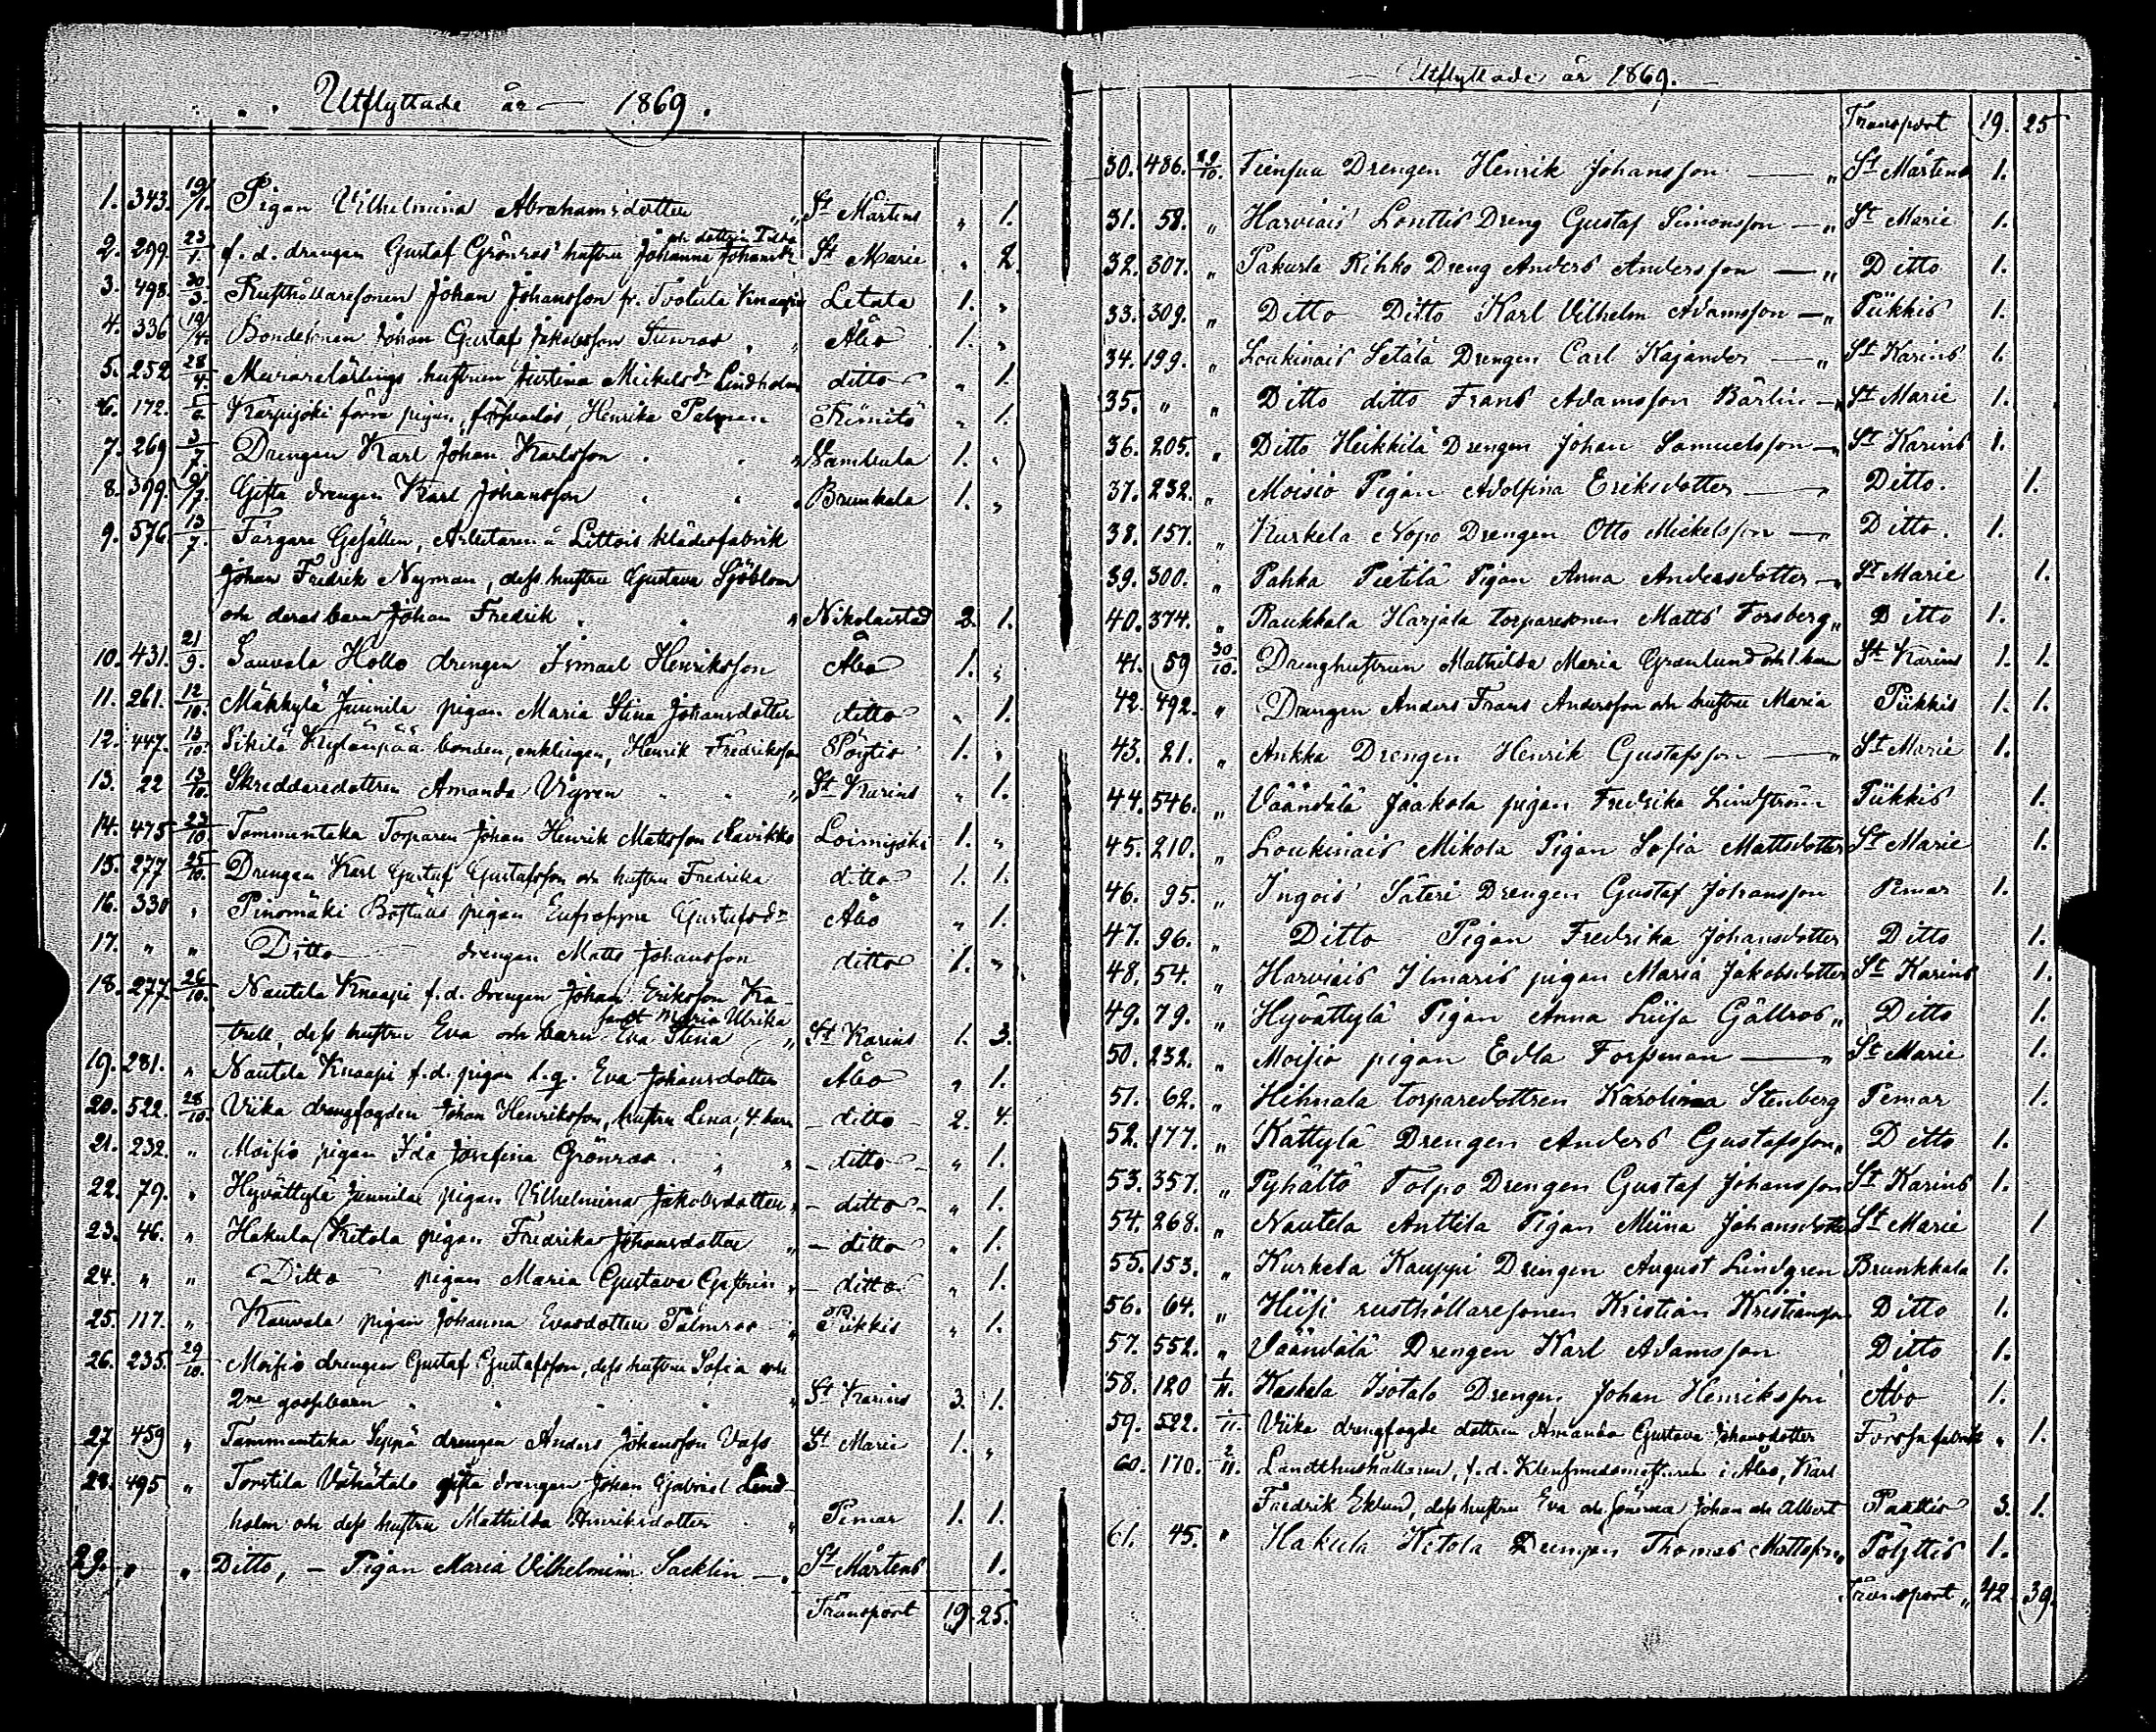 Utflyttade år 1869.
1. 343. 19/1. Pigan Vilhelmina Abrahamsdotter " St Mårtens " 1.
och dottren Ida
2. 299. 23/1. f. d. drengen Gustaf Grönroos' hustru Johanna Johansdr St Marie " 2.
3. 498. 30/3. Rusthållaresonen Johan Johansson fr. Knaapi Letala 1. "
4. 336 19/4. Bondesonen Johan Gustaf Jakobsson " Åbo 1. "
5. 252 28/4. Murarelärlings hustrun Justina Mickelsdr Lindholm ditto " 1.
6. 172. 5/6. Karpijoki förra pigan, Henrika Palmen Kimito " 1.
7. 269 3/7. Drengen Karl Johan Karlsson " " Vambula 1. "
8. 399. 9/7. Gifta drengen Karl Johansson " " Brunkala 1. "
9. 576 13/7. Färgare Gesällen, Arbetaren å Littois klädesfabrik
Johan Fredrik Nyman, dess hustru Gustava Sjöblom
och deras barn Johan Fredrik " " " Nikolaistad 2. 1.
10. 431. 21/9. Sauvala Hollo drengen Ismael Henriksson Åbo 1. "
11. 261. 12/10. Mäkkylä Junnila pigan Maria Stina Johansdotter ditto " 1.
12. 447. 13/10. Sikilä Kylänpää bonden, enklingen, Henrik Fredriksson Pöytis 1. "
13. 22 13/10. Skreddaredottren Amanda Vigren " " " St Karins " 1.
14. 475 23/10. Tammentaka Torparen Johan Henrik Mattsson Lavikko Loimijoki 1. "
15. 277 25/10. Drengen Karl Gustaf Gustafsson och hustru Fredrika ditto 1. 1.
16. 330 " Pinomäki Boställe pigan Eufrosyne Gustafsdr Åbo " 1.
17. " " Ditto drengen Matts Johansson ditto 1. "
18. 277. 26/10. Nautela Knaapi f. d. drengen Johan Eriksson Ka-
samt Maria Ulrika
trell, dess hustru Eva och barn Eva Stina " St Karins 1. 3.
19. 281. " Nautela Knaapi f. d. pigan l. q. Eva Johansdotter Åbo " 1.
20. 522. 28/10. Viika drengfogden Johan Henriksson, hustru Lena, 4 barn ditto 2. 4.
21. 232. " Moisio pigan Ida Josefina Grönroos " " ditto " 1.
22. 79. " Hyvättylä Junnila pigan Vilhelmina Jakobsdotter " ditto " 1.
23. 46. " Hakula Ketola pigan Fredrika Johansdotter " ditto " 1.
24. " " Ditto pigan Maria Gustava Gestrin " ditto " 1.
25. 117. " Kauvala pigan Johanna Evasdotter Palmroos " Piikkis " 1.
26. 235. 29/10. Moisio drengen Gustaf Gustafsson, dess hustru Sofia och
2ne gossebarn " " " " " St Karins 3. 1.
27 459 " Tammentaka Seppä drengen Anders Johansson Vass St Marie 1. "
28. 495 " Torstila Vähätalo gifta drengen Johan Gabriel Lind-
holm och dess hustru Mathilda Henriksdotter " Pemar 1. 1.
29. " " Ditto, - Pigan Maria Vilhelmina Sacklin - " St Mårtens 1.
Transport 19. 25.
Utflyttade år 1869.
Transport 19. 25
30. 486. 29/10. Tiensuu Drengen Henrik Johansson " St Mårtens 1.
31. 58. " Harviais Lonttis Dreng Gustaf Simonsson " St Marie 1.
32. 307. " Pakurla Rihko Dreng Anders Andersson " Ditto 1.
33. 309. " Ditto Ditto Karl Vilhelm Adamsson " Piikkis 1.
34. 199. " Loukinais Setälä Drengen Carl Kajander " St Karins 1.
35. " " Ditto ditto Frans Adamsson Bärlin " St Marie 1.
36. 205. " Ditto Heikkilä Drengen Johan Samuelsson " St Karins 1.
37. 232. " Moisio Pigan Adolfina Eriksdotter " Ditto. 1.
38. 157. " Kurkela Nopo Drengen Otto Mickelsson " Ditto. 1.
39. 300. " Pahka Pietilä Pigan Anna Andersdotter " St Marie 1.
40. 374. " Raukkala Harjala torparesonen Matts Forsberg " Ditto 1.
41. 59 30/10. Drenghustrun Mathilda Maria Grönlund och 1 barn St Karins 1. 1.
42. 492. " Drengen Anders Frans Andersson och hustru Maria Piikkis 1. 1.
43. 21. " Ankka Drengen Henrik Gustafsson " St Marie 1.
44. 546. " Väändälä Jaakola pigan Fredrika Lindström Piikkis 1.
45. 210. " Loukinais Mikola Pigan Sofia Mattsdotter St Marie 1.
46. 95. " Ingois Säteri Drengen Gustaf Johansson Pemar 1.
47. 96. " Ditto Pigan Fredrika Johansdotter Ditto 1.
48. 54. " Harviais Ilmaris pigan Maria Jakobsdotter St Karins 1.
49. 79. " Hyvättylä Pigan Anna Luisa Gällros " Ditto 1.
50. 232. " Moisio pigan Edla Forssman " St Marie 1.
51. 62. " Hihnala torparedottren Karolina Stenberg Pemar 1.
52. 177. " Kättylä Drengen Anders Gustafsson " Ditto 1.
53. 357. " Pyhältö Tolpo Drengen Gustaf Johansson St Karins 1.
54. 268. " Nautela Anttila Pigan Miina Johansdotter St Marie 1
55. 153. " Kurkela Kauppi Drengen August Lindgren Brunkkala 1.
56. 64. " Hiisi rusthållaresonen Kristian Kristiansson Ditto 1.
57. 552. " Väändälä Drengen Karl Adamsson Ditto 1.
58. 120 1/11. Kaskala Isotalo Drengen Johan Henriksson Åbo 1.
59. 522. "/11. Viika drengfogde dottren Amanda Gustava Johansdotter Forssa fabrik " 1.
60. 170. 2/11. Landthushållaren, f. d. Klensmedsmästaren i Åbo, Karl
Fredrik Eklund, dess hustru Eva och sönerna Johan och Albert Paattis 3. 1.
61. 45. " Hakula Ketola Drengen Thomas Mattsson " Pöyttis 1.
Transport " 42. 39.